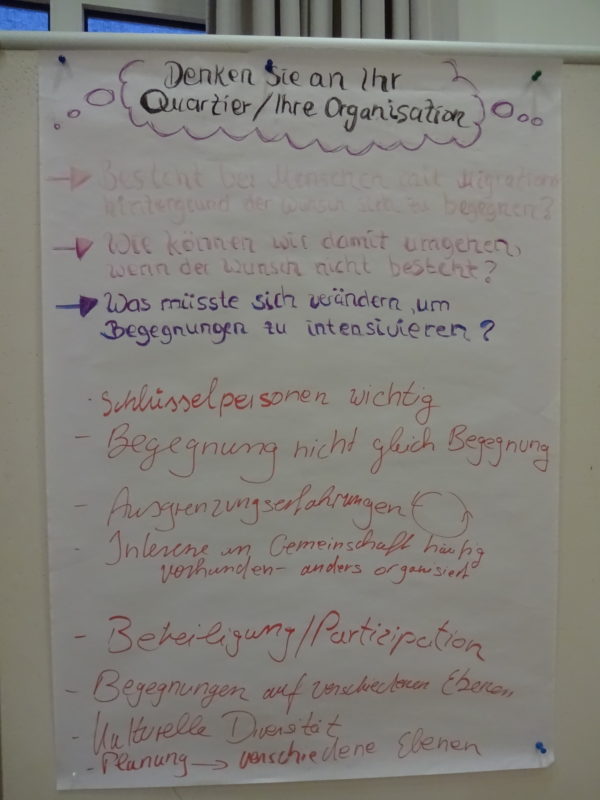 Denken Sie an Ihr
Quartier/Ihre Organisation
→ Besteht bei Menschen mit Migrations
hintergrund der Wunsch sich zu begegnen?
→ Wie können wir damit umgehen,
wenn der Wunsch nicht besteht?
→ Was müsste sich verändern, um
Begegnungen zu intensivieren?
· Schlüsselpersonen wichtig
- Begegnung nicht gleich Begegnung
- Ausgrenzungserfahrungen
- Interesse an Gemeinschaft häufig
vorhanden - anders organisiert
- Beteiligung/Partizipation
- Begegnungen auf verschiedenen Ebenen
- Kulturelle Diversität
- Planung → verschiedene Ebenen